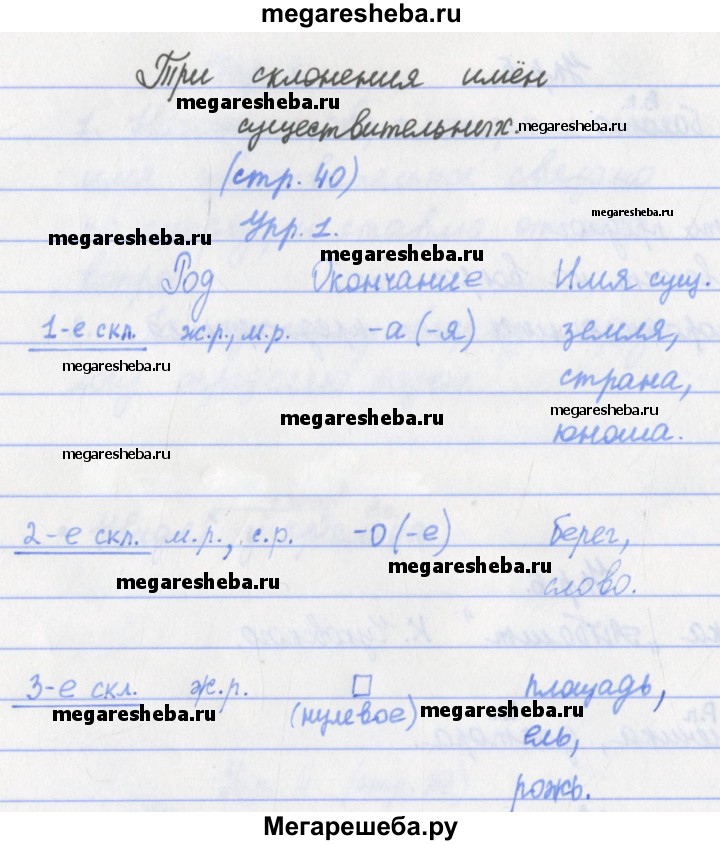 megaresheba.ru
Три склонения имён
megaresheba.ru
существительных. megaresheba.ru
(стр. 40)
Упр. 1.
megaresheba.ru
megaresheba.ru
megaresheba.ru
Род Окончание Имя сущ.
1-е скл. ж.р., м.р. -а (-я) земля,
megaresheba.ru
страна,
megaresheba.ru
megaresheba.ru
юноша.
megaresheba.ru
2-е скл. м.р., с.р. -о (-е) берег,
megaresheba.ru
megaresheba.ru
слово.
3-е скл. ж.р. □ площадь,
megaresheba.ru (нулевое) megaresheba.ru
ель,
рожь.
Мегарешеба.ру